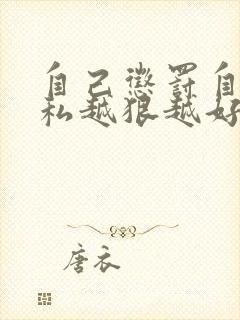 自己惩罚自
私越狠越好
唐衣